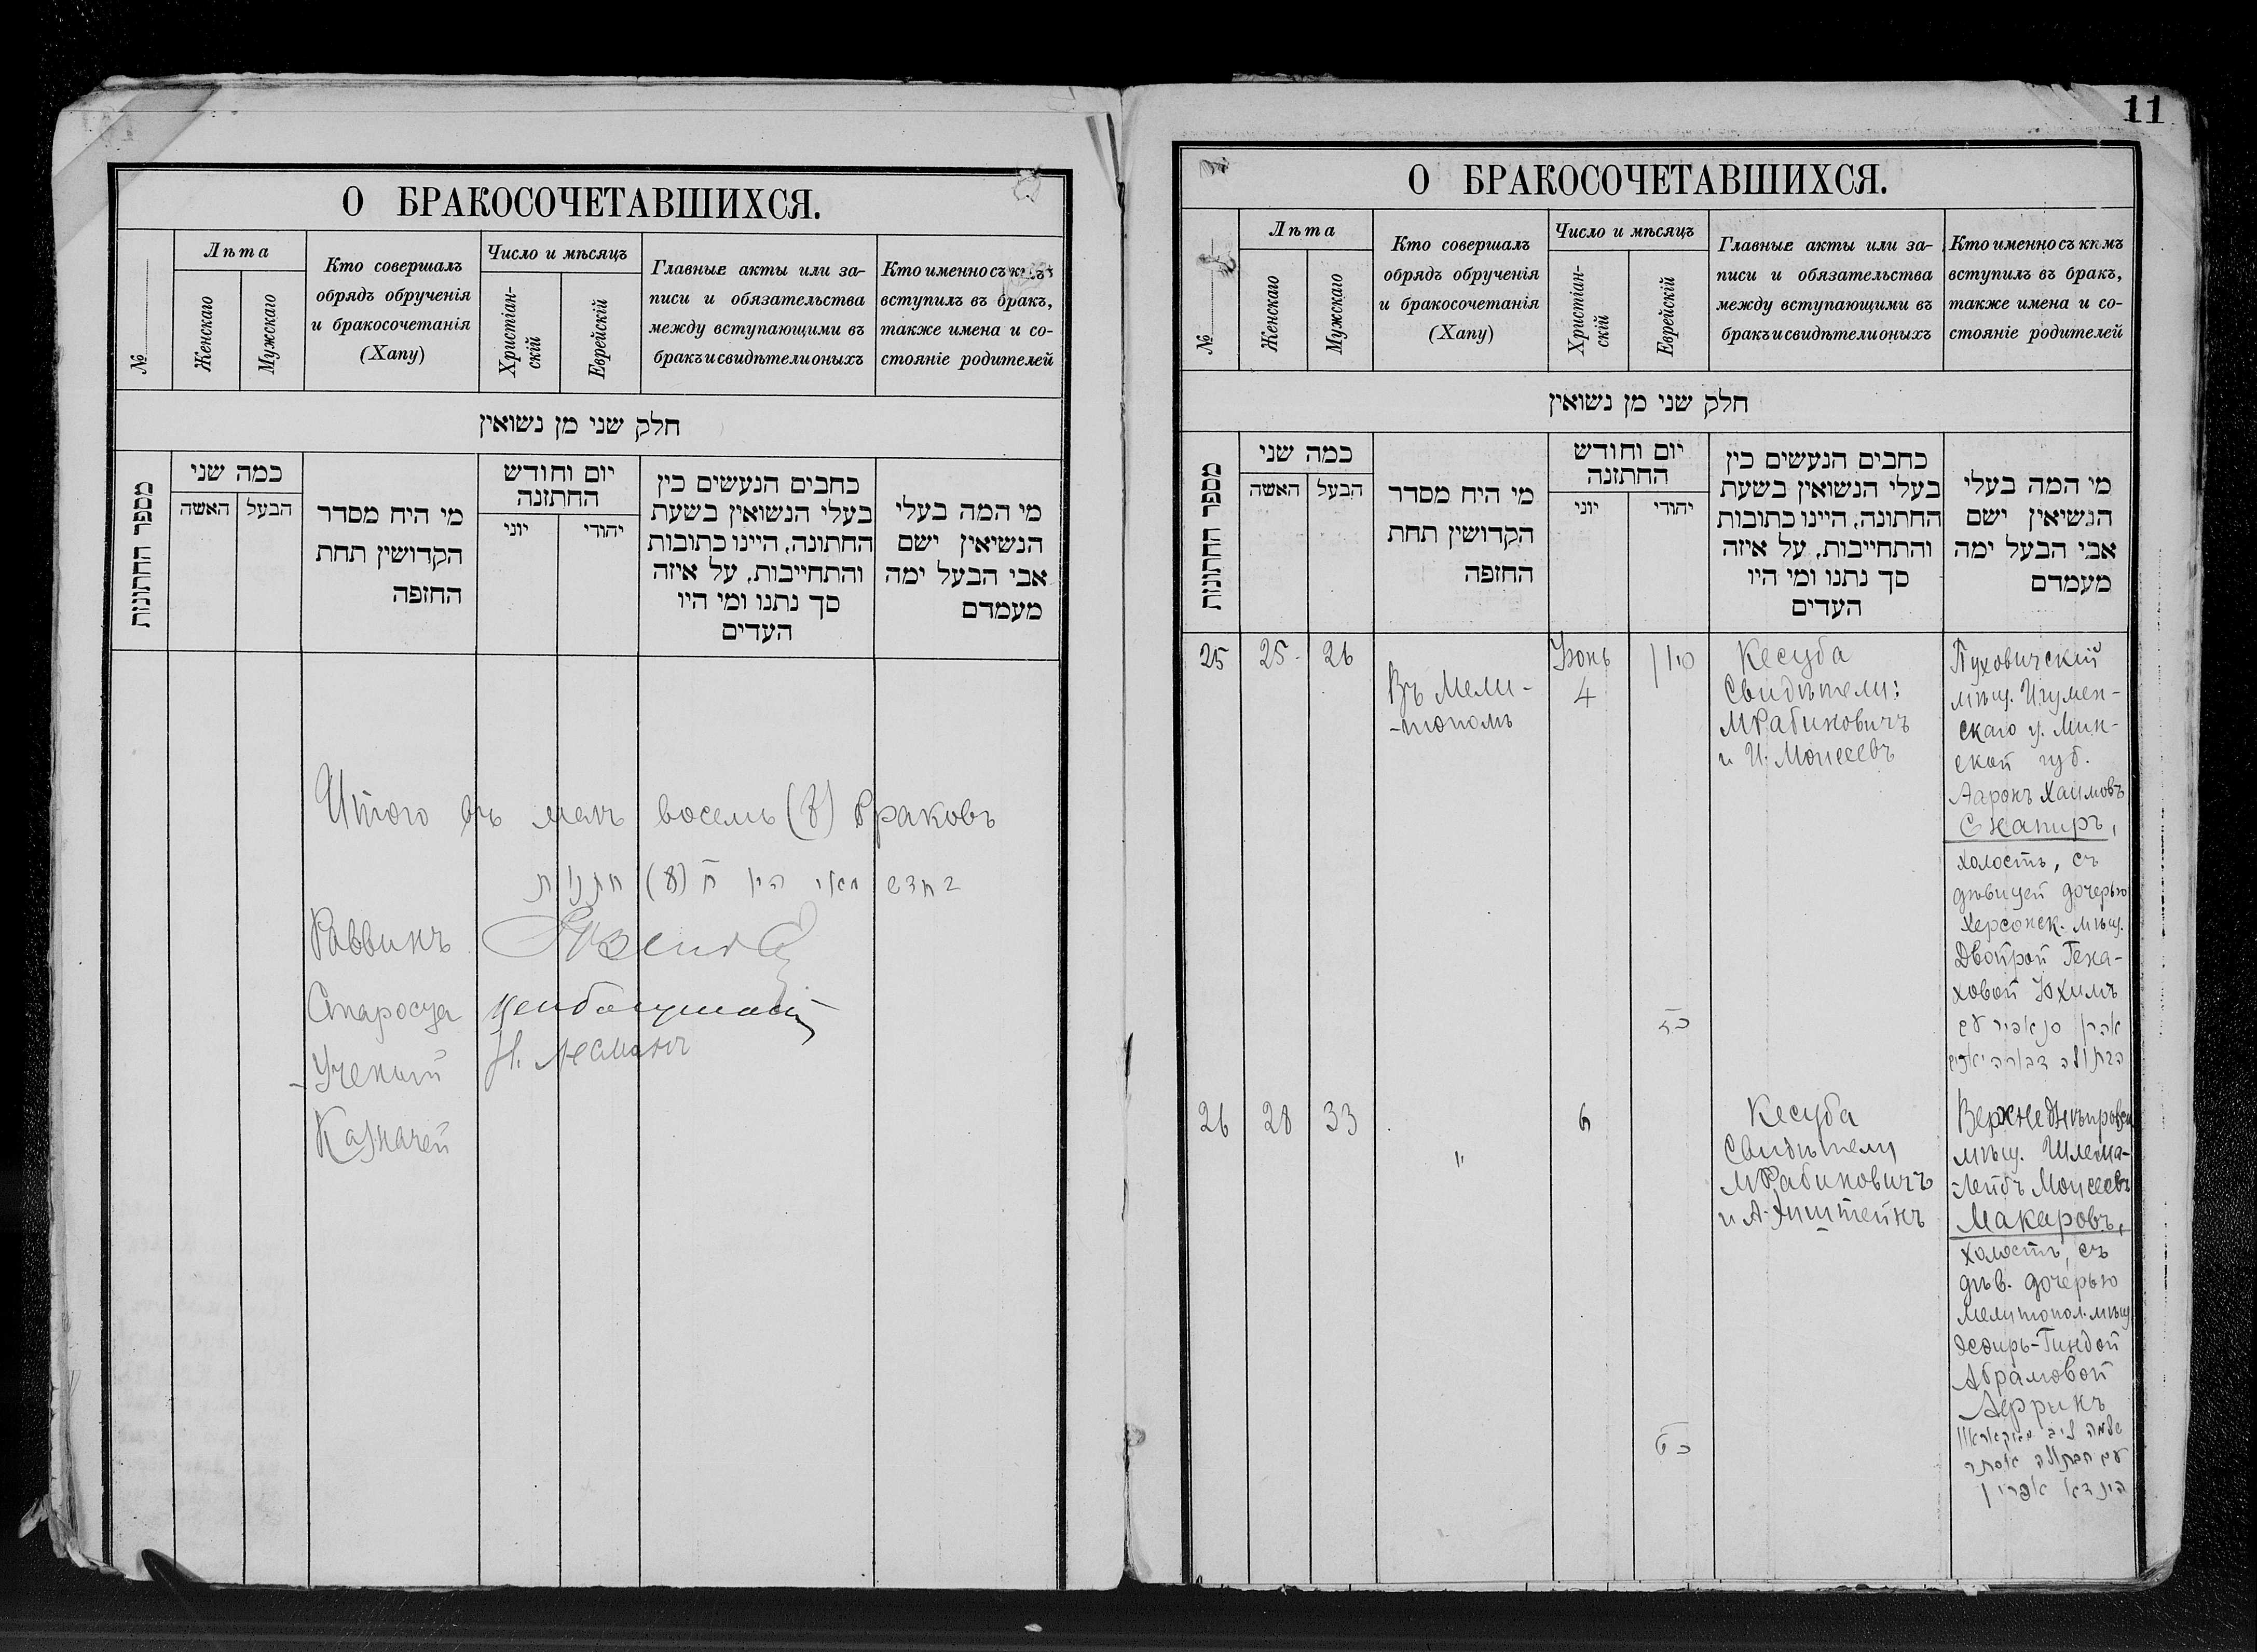 О БРАКОСОЧЕТАВШИХСЯ.
№
Лѣта
Женскаго
Мужскаго
Кто совершалъ
обрядъ обрученія
и бракосочетанія
(Хапу)
Число и мѣсяцъ
Христіан-
скій
Еврейскій
Главные акты или за-
писи и обязательства
между вступающими въ
бракъ и свидѣтели оныхъ
Кто именно съ кѣмъ
вступилъ въ бракъ,
также имена и со-
стояніе родителей
חלק שני מן נשואין
מספר החתונות
כמה שני
האשה
הבעל
מי היח מסדר
הקדושין תחת
החופה
יום וחודש
החתונה
יוני
יהודי
כחבים הנעשים כין
בעלי הנשואין בשעת
החתונה, היינו כתובות
והתחייבות, על איזה
סך נתנו ומי היו
העדים
מי המה בעלי
הנשיאין ישם
אבי הבעל ימה
מעמדם
Итого въ маѣ восемь (8) браковъ
בחדש מאי היו ח (8) חתנות
Раввинъ
Староста
Ученый
Казначей
11
О БРАКОСОЧЕТАВШИХСЯ.
№
Лѣта
Женскаго
Мужскаго
Кто совершалъ
обрядъ обрученія
и бракосочетанія
(Хапу)
Число и мѣсяцъ
Христіан-
скій
Еврейскій
Главные акты или за-
писи и обязательства
между вступающими въ
бракъ и свидѣтели оныхъ
Кто именно съ кѣмъ
вступилъ въ бракъ,
также имена и со-
стояніе родителей
חלק שני מן נשואין
מספר החתונות
כמה שני
האשה
הבעל
מי היח מסדר
הקדושין תחת
החופה
יום וחודש
החתונה
יוני
יהודי
כחבים הנעשים כין
בעלי הנשואין בשעת
החתונה, היינו כתובות
והתחייבות, על איזה
סך נתנו ומי היו
העדים
מי המה בעלי
הנשיאין ישם
אבי הבעל ימה
מעמדם
25
25
26
Въ Мели-
-тополѣ
Іюнь
4
סיון
כז
Кесуба
Свидѣтели:
М Рабиновичъ
и И. Моисеевъ
Пуховичскій
мѣщ. Игумен-
скаго у. Мин-
ской губ.
Ааронъ Хаимовъ
Снапиръ,
холостъ, съ
дѣвицей дочерью
Херсонск. мѣщ.
Двойрой Гена-
ховой Юхимъ
אהרן סנאפיר עם
הבתולה דבורה
26
28
33
"
6
כט
Кесуба
Свидѣтели
М Рабиновичъ
и А. Эпштейнъ
Верхнеднѣпровск
мѣщ. Шлема-
-Лейбъ Моисеевъ
Макаровъ,
холостъ, съ
дѣв. дочерью
мелитопол. мѣщ
Эсѳирь-Гиндой
Абрамовой
Аерринъ
שלמה ליב מאקאראוו
עם הבתולה אסתר
הינדא אפרין